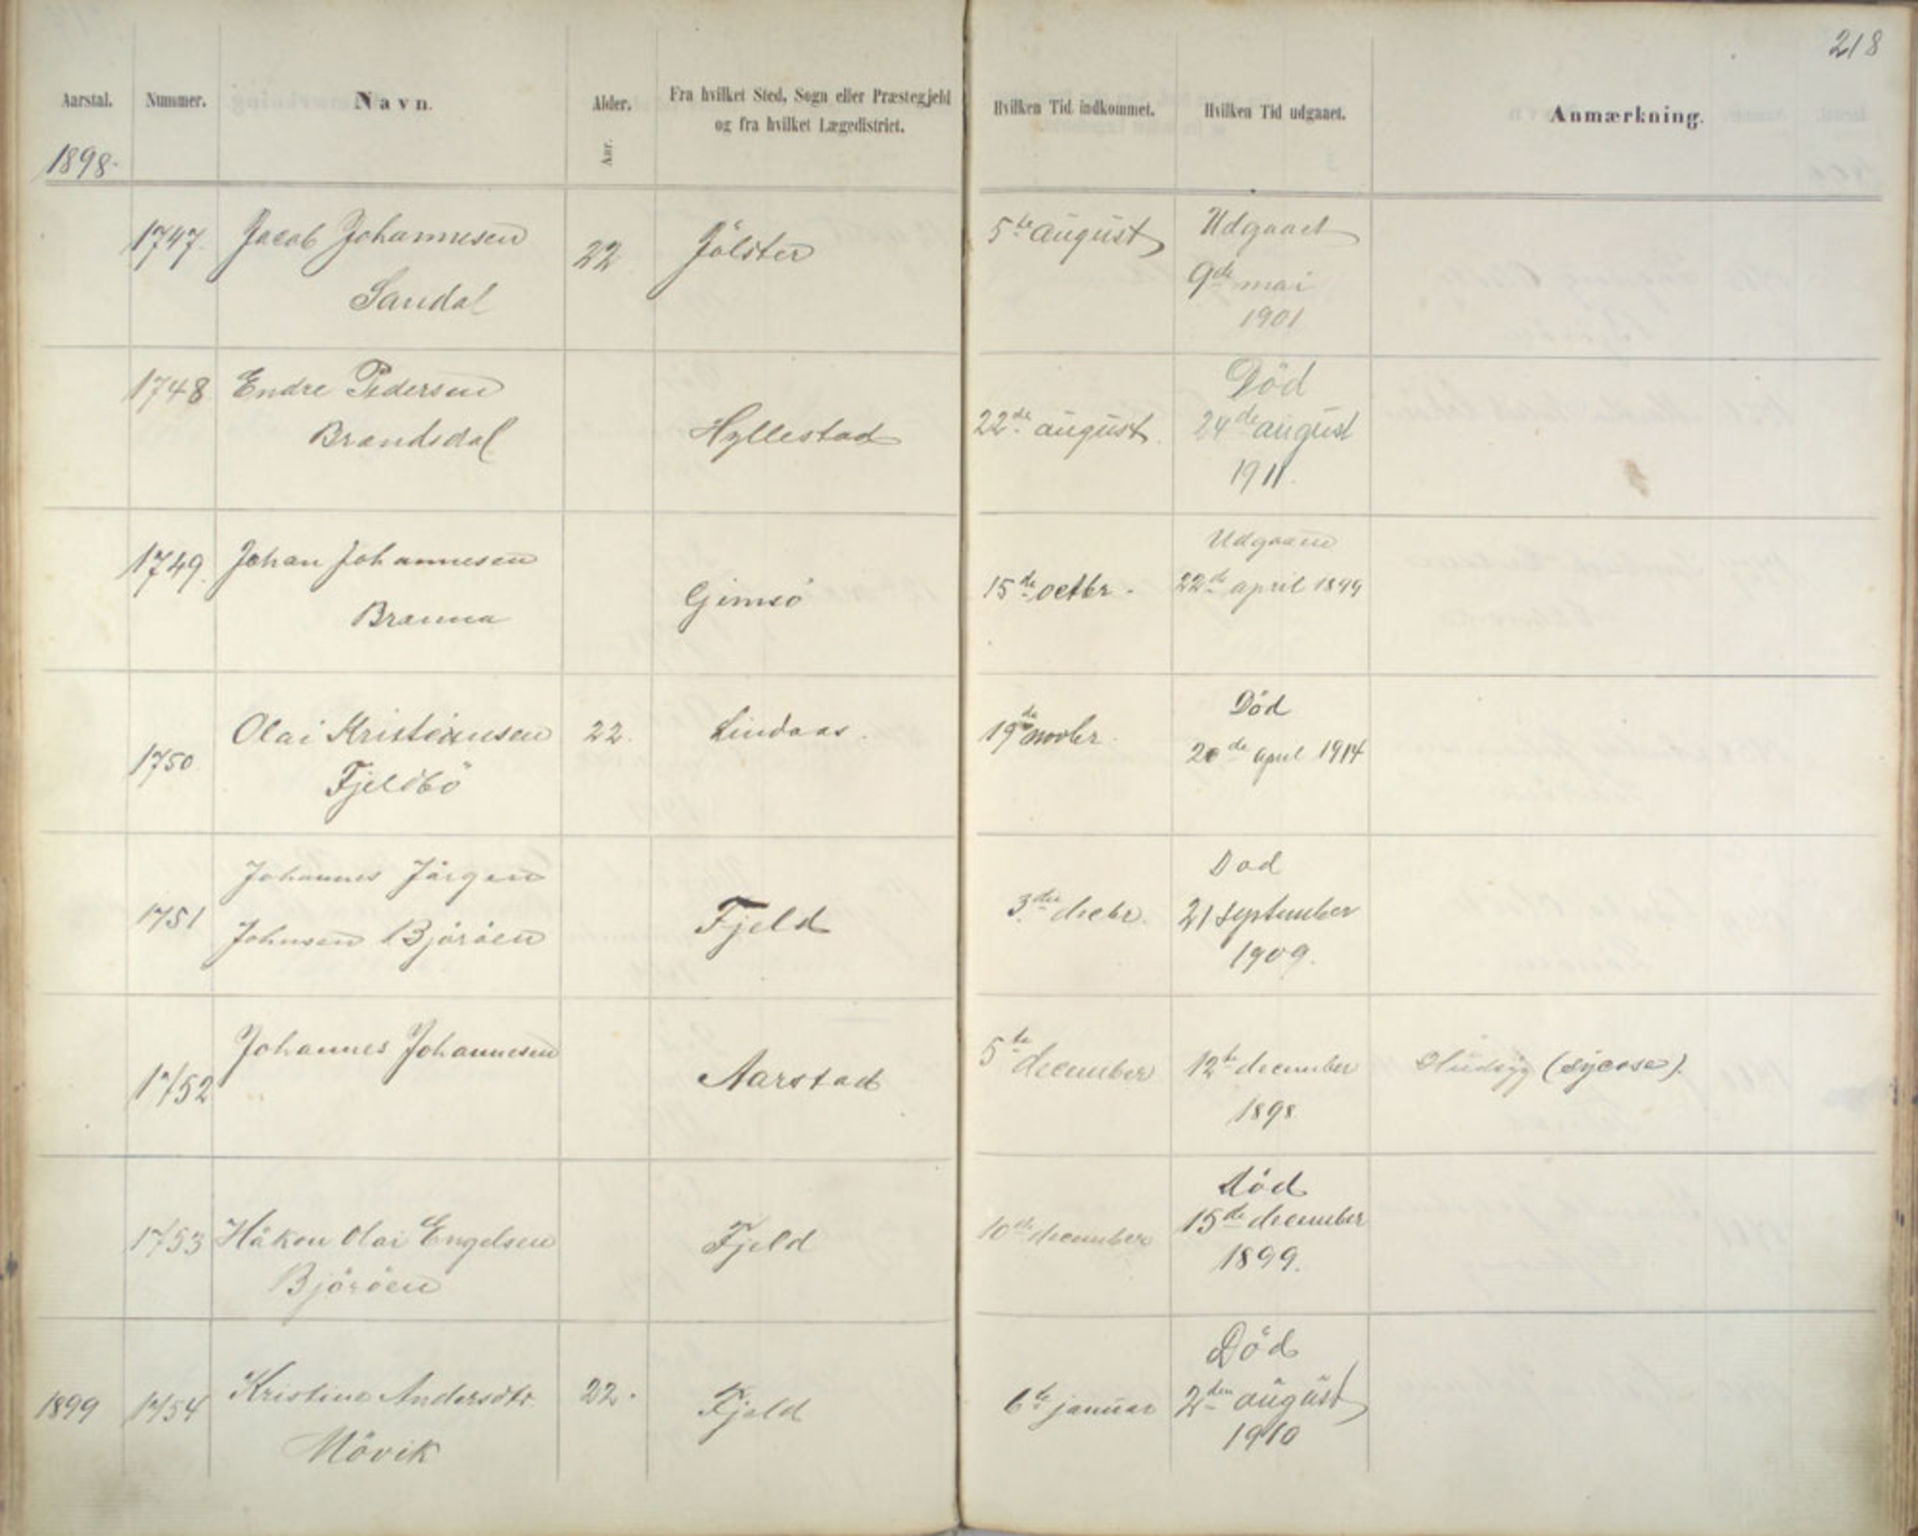 218
Aarstal. Nummer. Navn. Alder. Fra hvilket Sted, Sogn eller Præstegjeld Hvilken Tid indkommet. Hvilken Tid udgaaet. Anmærkning.
og fra hvilket Lægedistrict.
Aar.
1898.
1747. Jacob Johannesen 22 Jölster 5te august Udgaaet
Sandal 9de mai
1901
1748 Endre Pedersen Död
Brandsdal Hyllestad 22de august 24de august
1911.
1749. Johan Johannesen Udgaaen
Branna Gimsö 15de octbr. 22de april 1899
1750 Olai Kristiansen 22. Lindaas. 19de novbr. Död
Fjeldbö 20de april 1914
1751 Johannes Jörgen Död
Johnsen Björöen Fjeld 3die decbr. 21 september
1909.
1752 Johannes Johannesen Aarstad 5te december 12te december (sycose).
1898
1753 Håkon Olai Engelsen Fjeld 10de december Död
Björöen 15de december
1899.
1899 1754 Kristine Andersdtr. 22. Fjeld 6te januar Död
Mövik 2den august
1910